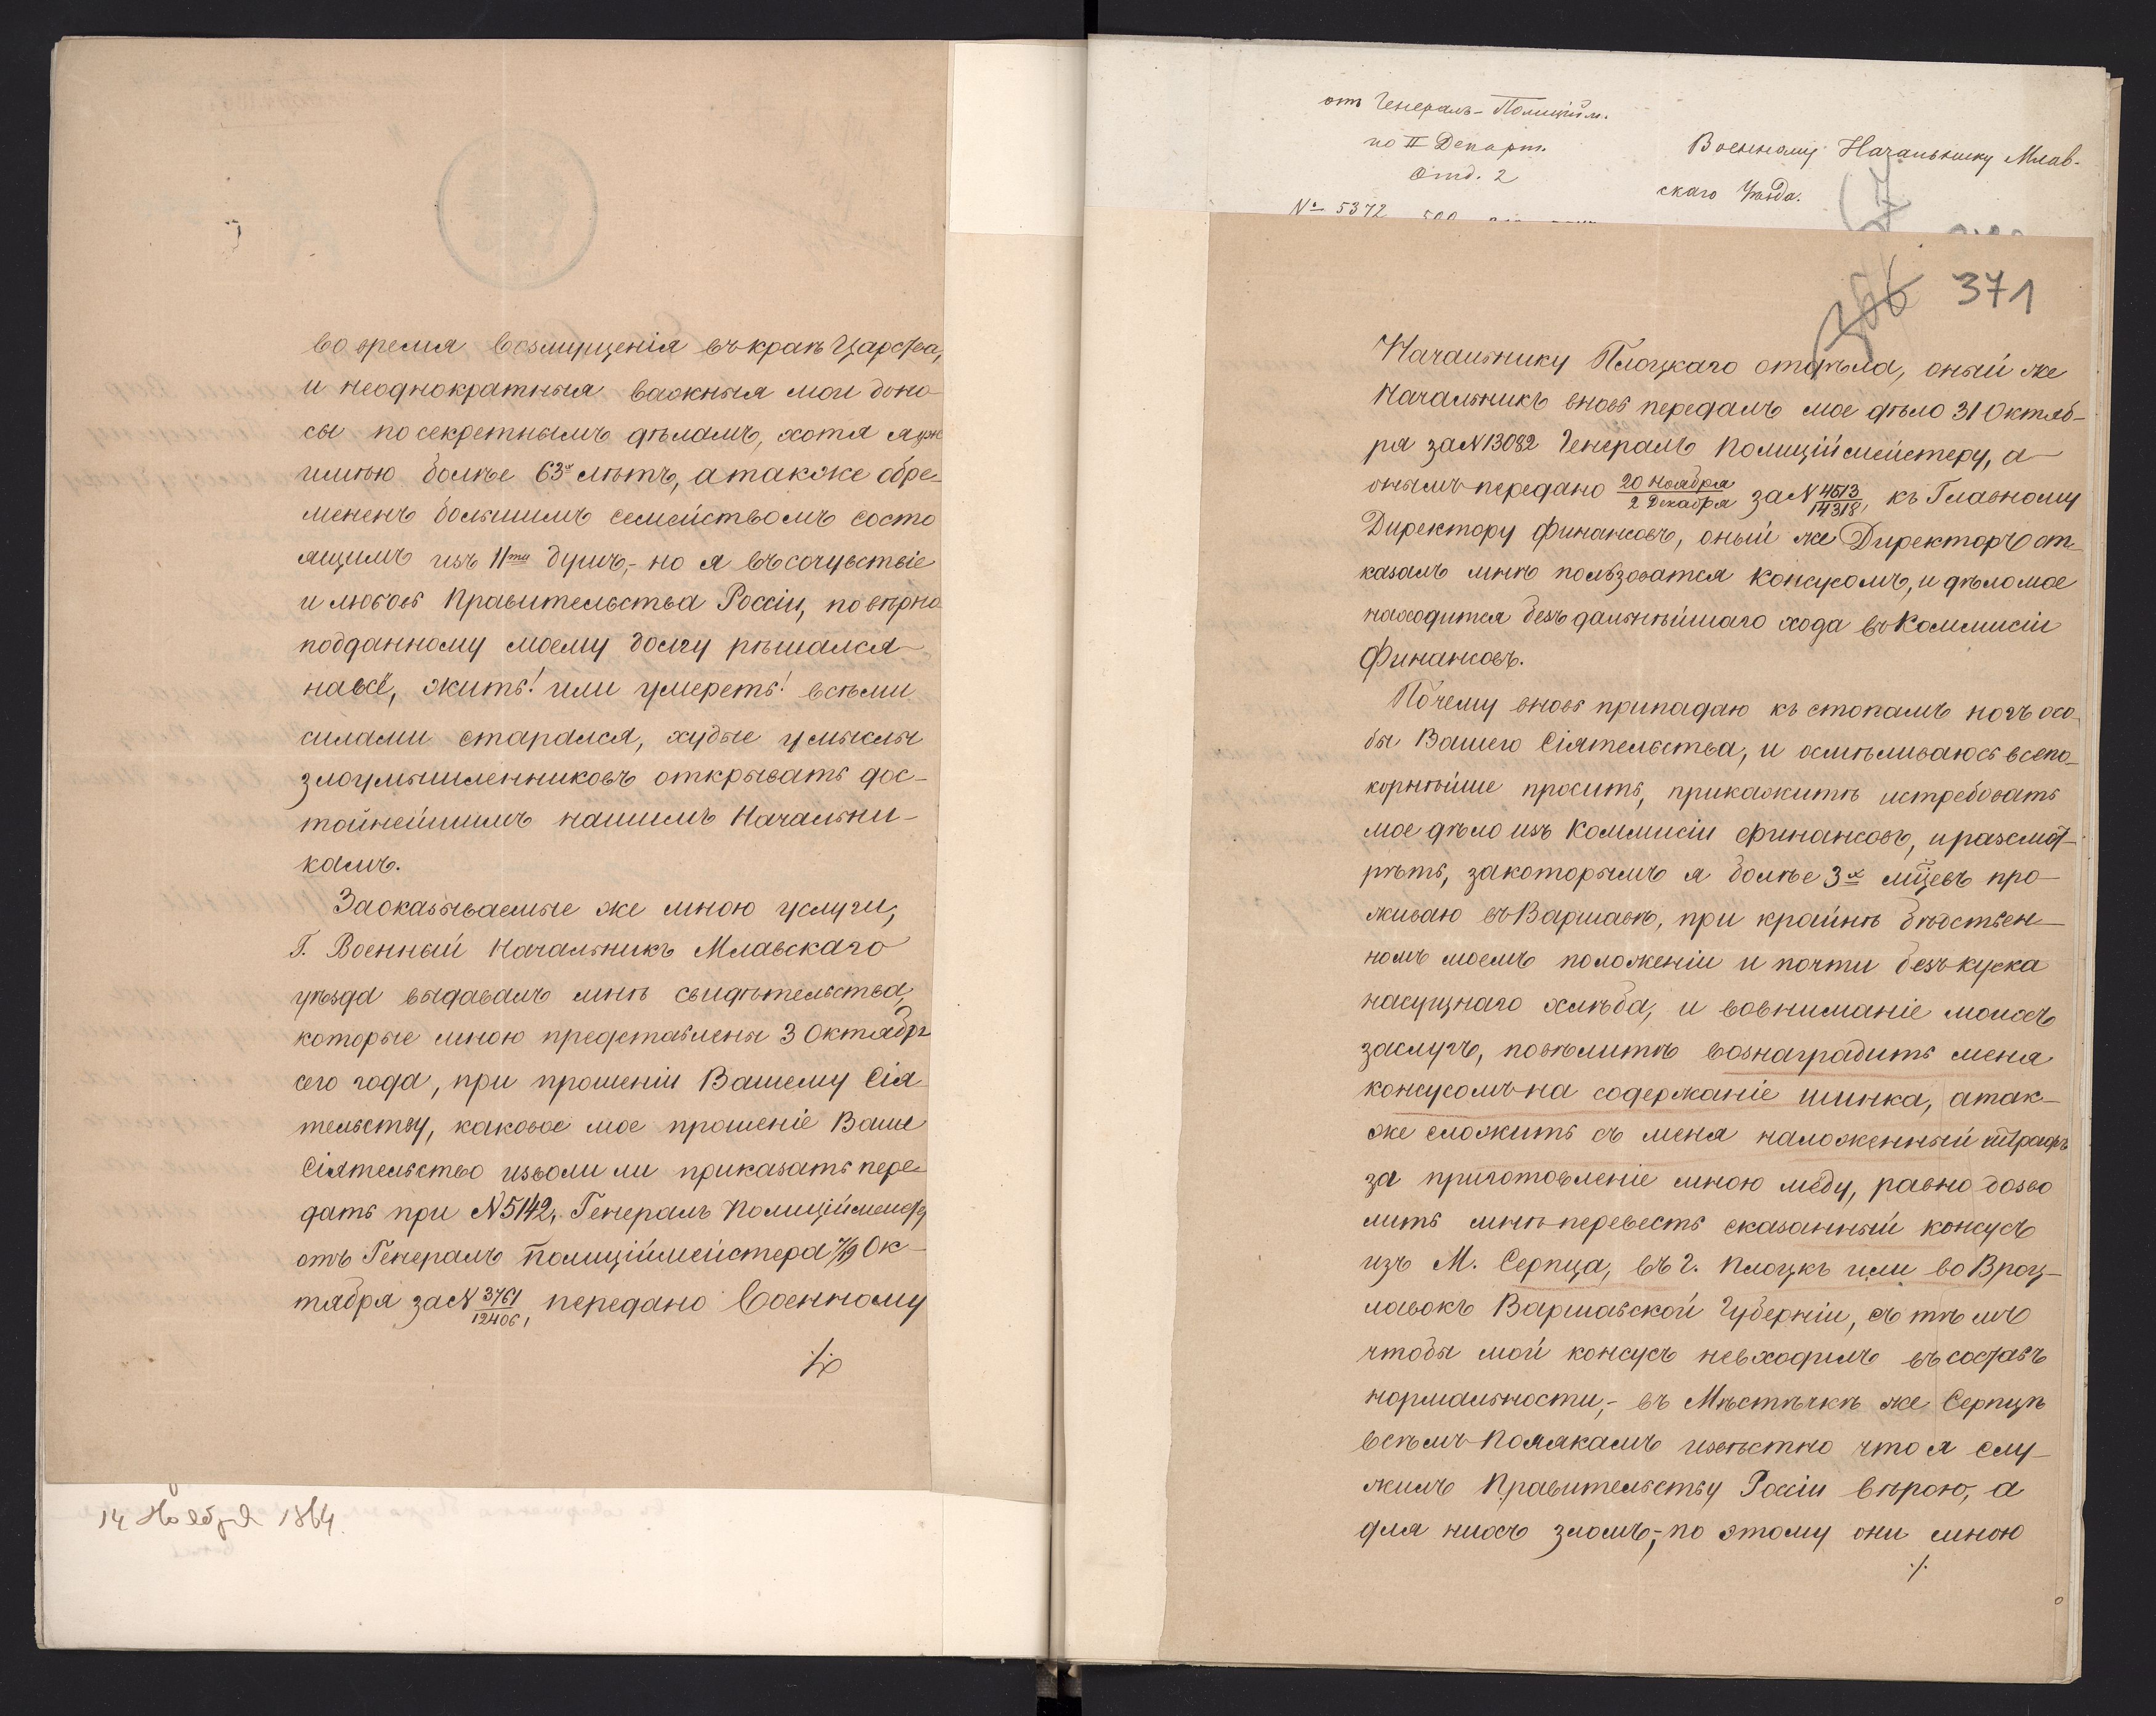 во время возмущенія въ краѣ Царства,
и неоднократныя важныя мои доно-
сы по секретнымъ дѣламъ, хотя я уже
имѣю болѣе 63х лѣтъ, а также обре-
мененъ большимъ семействомъ состо
ящимъ изъ 11ти душъ,- но я въ сочувствіе
и любовь Правительства Россіи, по вѣрно
подданному моему долгу рѣшался
на всё, жить! или умереть! всѣми
силами старался, худые умыслы
злоумышленниковъ открывать дос-
тойнейшимъ нашимъ Начальни-
камъ.
За оказываемые же мною услуги,
Г. Военный Начальникъ Млавскаго
уѣзда выдавалъ мнѣ свидѣтельства,
которые мною представлены 3 Октября
сего года, при прошеніи Вашему Сія-
тельству, каковое мое прошеніе Ваше
Сіятельство изволи ли приказать пере-
дать при N 5142, Генералъ Полиціймейстеру
отъ Генералъ Полиціймейстера 7/19 Ок-
тября за N 3761/12406, передано Военному
./.
14 Ноября 1864.
отъ Генералъ-Полицiйм.
по II Департ.
Отд. 2
№ 5372
Военному Начальнику Млав-
скаго Уѣзда.
366 371
Начальнику Плоцкаго отдѣла, оный же
Начальникъ вновь передалъ мое дѣло 31 Октяб-
ря за N 13082 Генералъ Полиціймейстеру, а
онымъ передано 20 Ноября/2 Декабря за N 4513/14318, къ Главному
Директору Финансовъ, оный же Директоръ от-
казалъ мнѣ пользоватся консусомъ, и дѣло мое
находится безъ дальнѣйшаго хода въ Коммисіи
Финансовъ.
Почему вновь припадаю къ стопамъ ногъ осо-
бы Вашего Сіятельства, и осмѣливаюсь всепо-
корнѣйше просить, прикажитѣ истребовать
мое дѣло изъ Коммисіи финансовъ, и разсмот-
рѣть, за которымъ я болѣе 3х мцевъ про-
живаю въ Варшавѣ, при крайнѣ бѣдствен-
номъ моемъ положеніи и почти безъ куска
насущнаго хлѣба, и во вниманіе моихъ
заслугъ, повѣлитѣ вознаградить меня
консусомъ на содержаніе шинка, а так-
же сложить съ меня наложенный штрафъ
за приготовленіе мною мёду, равно дозво
лить мнѣ перевесть сказанный консусъ
изъ М. Серпца, въ г. Плоцкъ или во Вроц-
лавокъ Варшавской Губерніи, съ тѣмъ
чтобы мой консусъ невходилъ въ составъ
нормальности,- въ Мѣстѣчкѣ же Серпцѣ
всѣмъ Полякамъ извѣстно что я слу-
жилъ Правительству Россіи вѣрою, а
для нихъ зломъ,- по этому они мною
./.